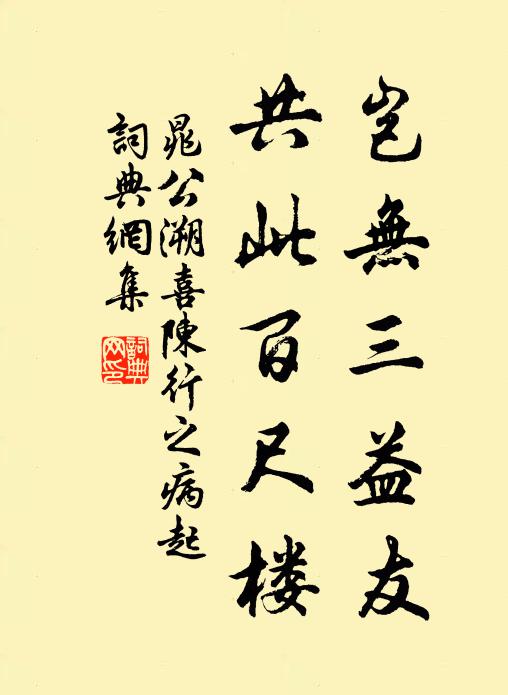 豈無三益友
共此百尺楼
晁公溯喜陳行之病起
詞典網集
詞典网印